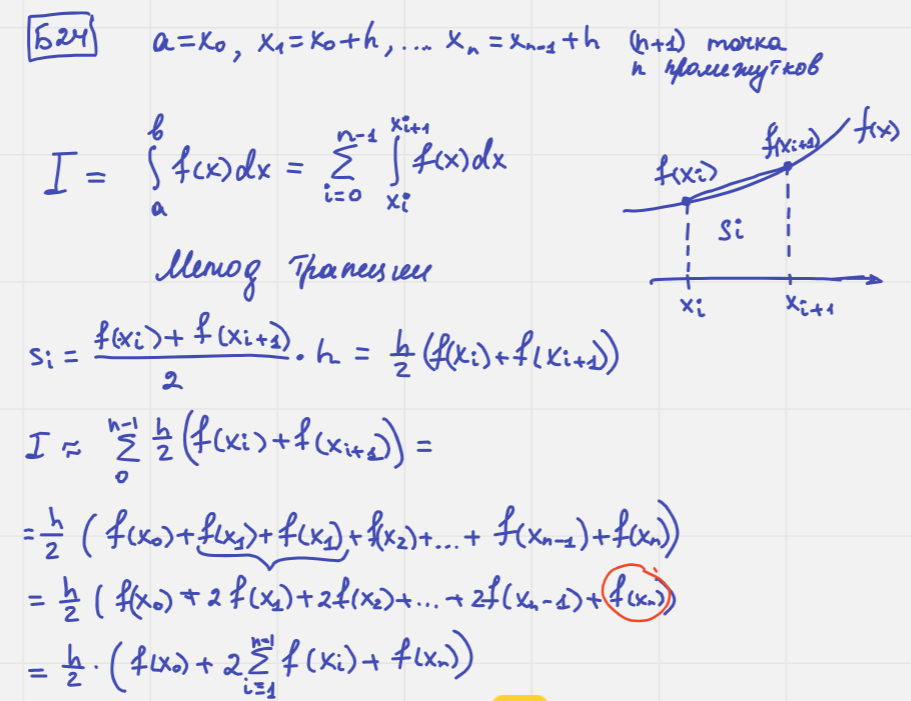 Б24 a=x₀, x₁=x₀+h, ... xₙ=xₙ₋₁+h (n+1) точка
n промежутков
I = ∫ₐᵇ f(x)dx = ∑ᵢ₌₀ⁿ⁻¹ ∫_{xᵢ}^{xᵢ₊₁} f(x)dx
f(xᵢ) f(xᵢ₊₁) f(x)
Si
xᵢ xᵢ₊₁
Метод Трапеции
Sᵢ = (f(xᵢ) + f(xᵢ₊₁))/2 · h = h/2 (f(xᵢ)+f(xᵢ₊₁))
I ≈ ∑₀ⁿ⁻¹ h/2 (f(xᵢ)+f(xᵢ₊₁)) =
= h/2 (f(x₀)+f(x₁)+f(x₁)+f(x₂)+...+f(xₙ₋₁)+f(xₙ))
= h/2 (f(x₀)+2f(x₁)+2f(x₂)+...+2f(xₙ₋₁)+f(xₙ))
= h/2 · (f(x₀)+2∑ᵢ₌₁ⁿ⁻¹ f(xᵢ)+f(xₙ))